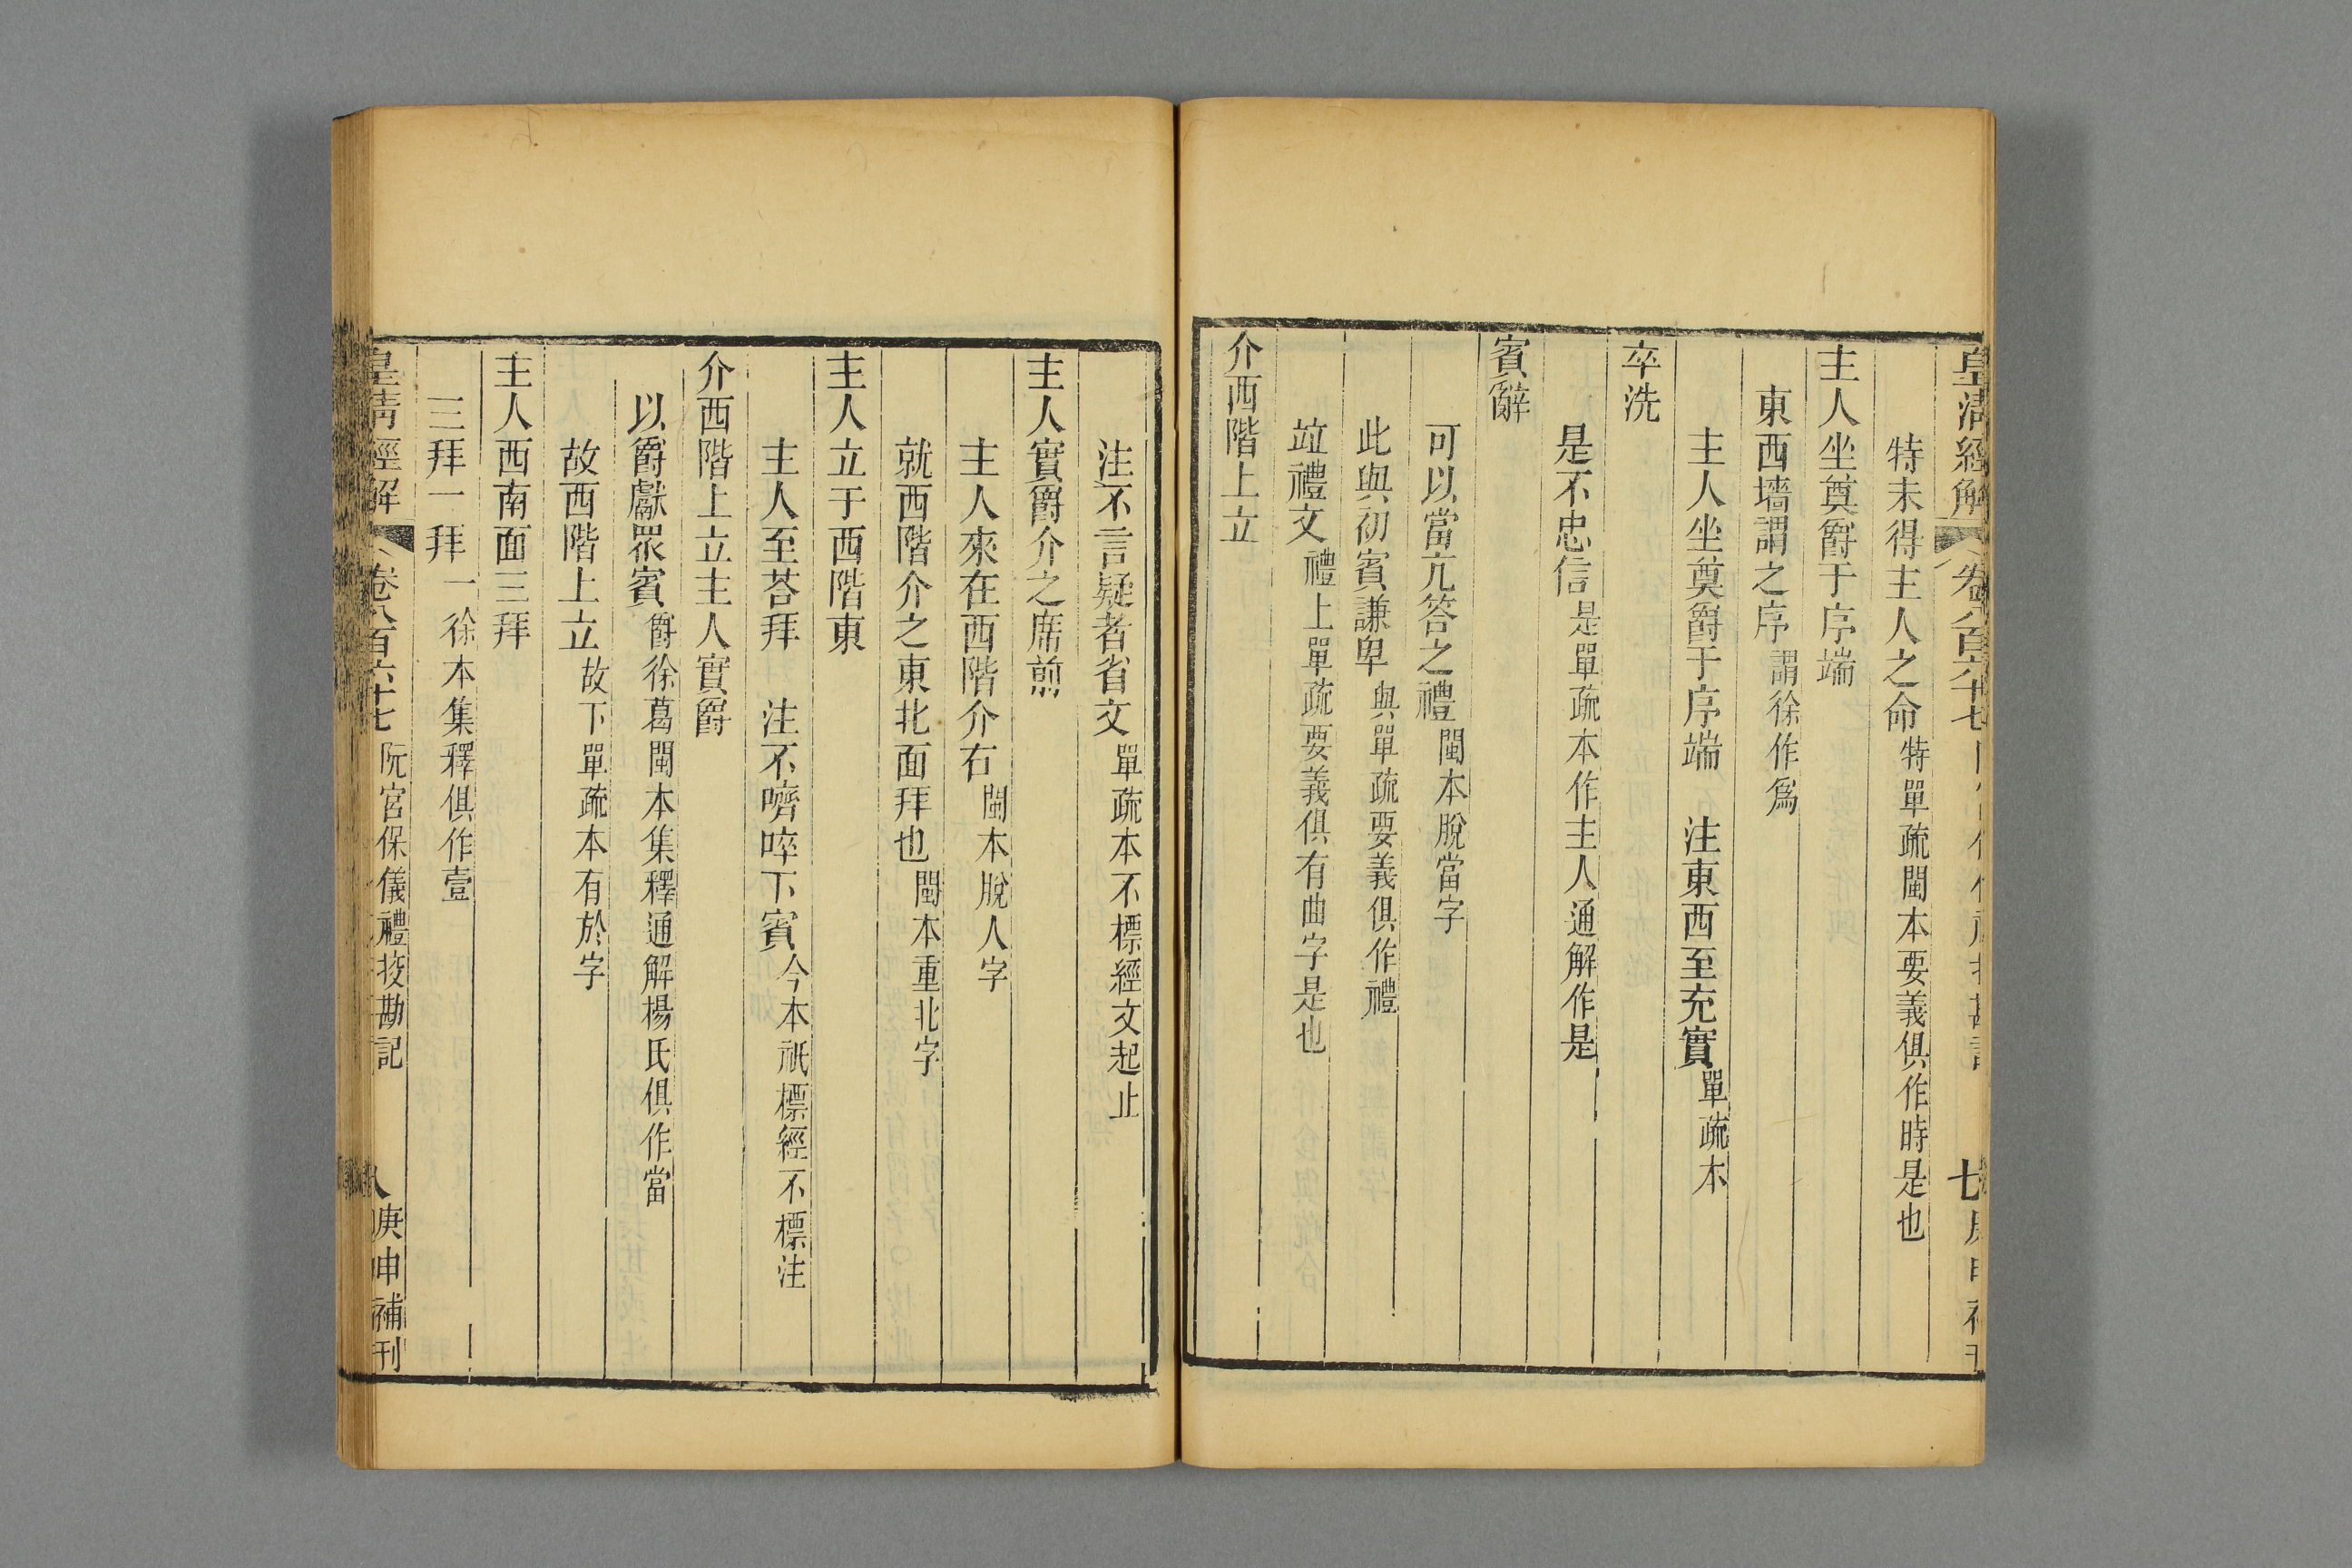 皇清經解 卷八百六十七 七
特未得主人之命特單疏閩本要義俱作時是也
主人坐奠爵于序端
東西墻謂之序謂徐作爲
主人坐奠爵于序端 注東西至充實單疏本
卒洗
是不忠信是單疏本作主人通解作是
賓辭
可以當亢答之禮閩本脫當字
此與初賓謙卑與單疏要義俱作禮
竝禮文禮上單疏要義俱有曲字是也
介西階上立
注不言疑者省文單疏本不標經文起止
主人實爵介之席前
主人來在西階介右閩本脫人字
就西階介之東北面拜也閩本重北字
主人立于西階東
主人至荅拜 注不嚌啐下賓今本祇標經不標注
介西階上立主人實爵
以爵獻眾賓爵徐葛閩本集釋通解楊氏俱作當
故西階上立故下單疏本有於字
主人西南面三拜
三拜一拜一徐本集釋俱作壹
皇清經解 卷八百六十七 阮宮保儀禮挍勘記 八 庚申補刊